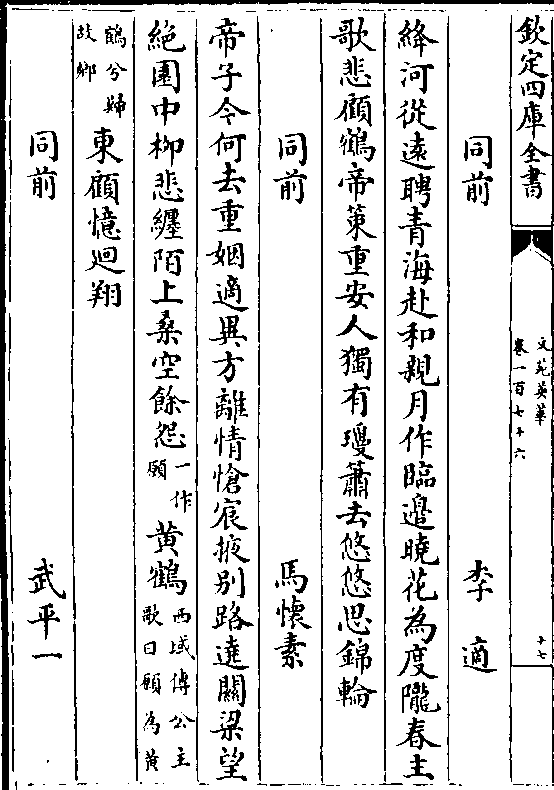 欽定四庫全書
文苑英華
卷一百七十六
十七
同前 李適
絳河從遠聘青海赴和親月作臨邉曉花為度隴春主
歌悲顧鶴帝策重安人獨有瓊簫去悠悠思錦輪
同前 馬懷素
帝子今何去重姻適異方離情愴宸掖别路遶關梁望
絶園中柳悲纒陌上桑空餘怨一作願黄鶴西域傳公主歌曰願為黄
鶴兮歸故鄉東顧憶迴翔
同前 武平一